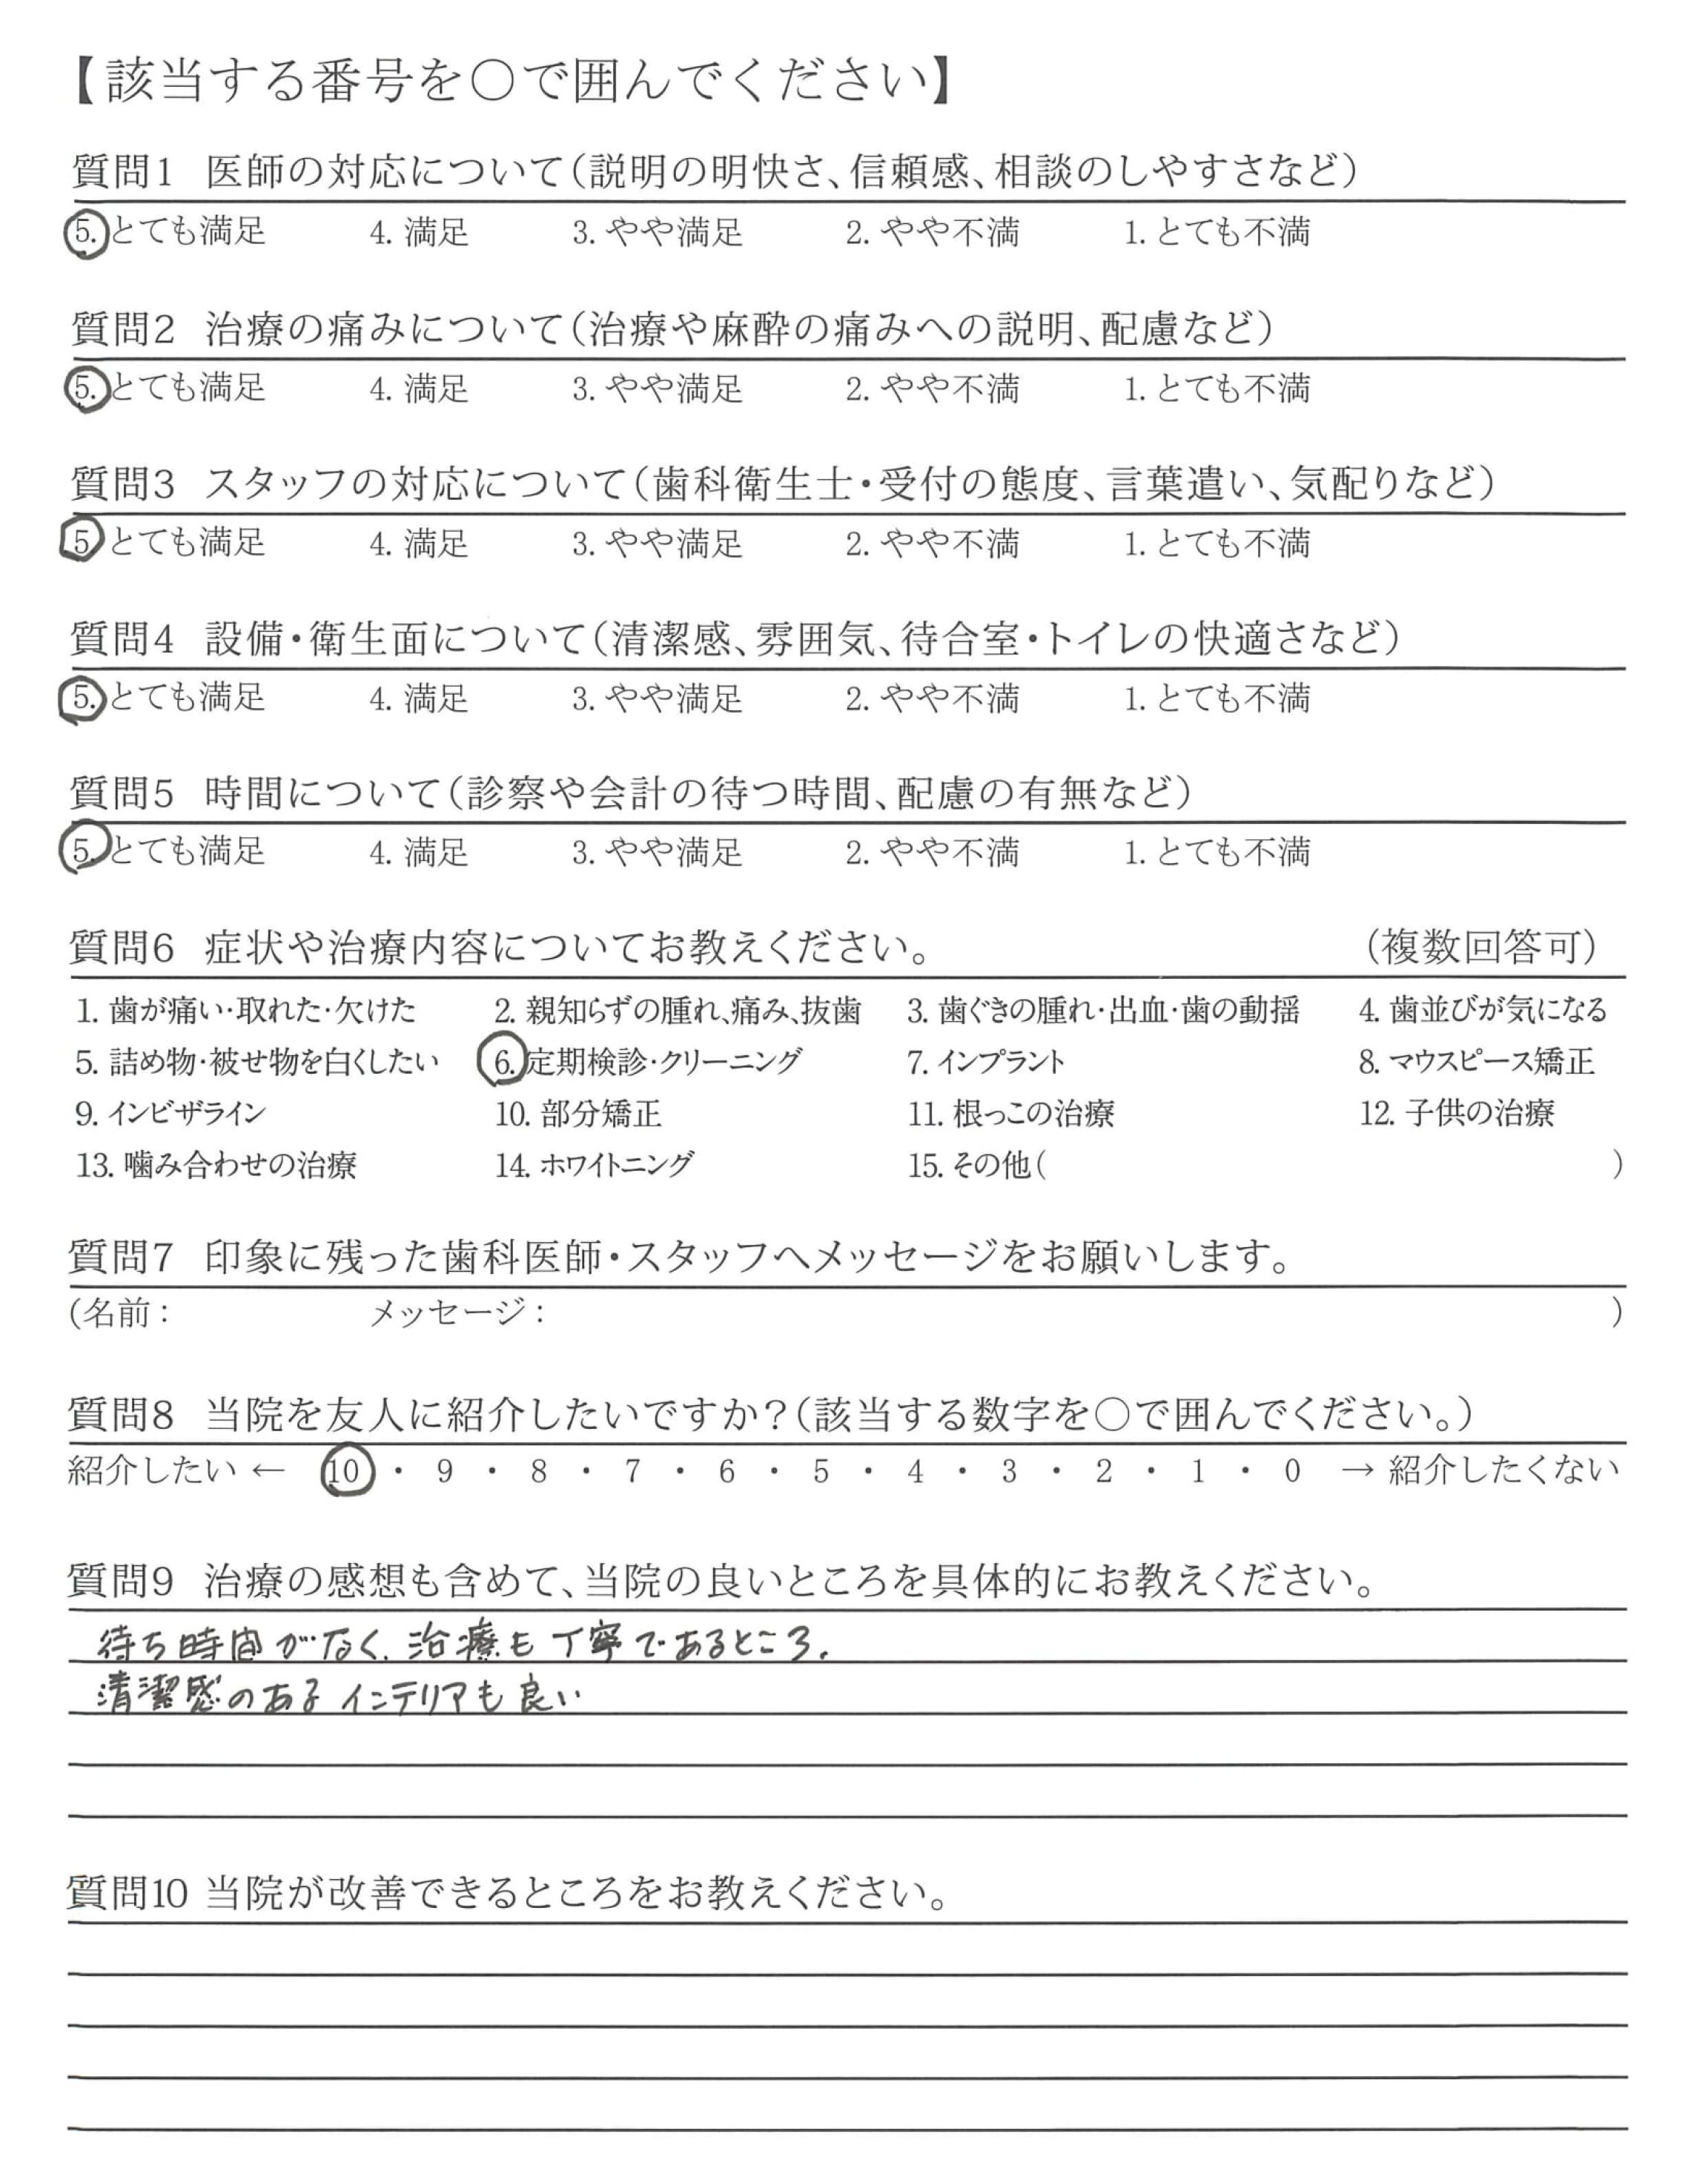 【該当する番号を○で囲んでください】
質問1 医師の対応について(説明の明快さ、信頼感、相談のしやすさなど)
5. とても満足 4. 満足 3. やや満足 2. やや不満 1. とても不満
質問2 治療の痛みについて(治療や麻酔の痛みへの説明、配慮など)
5. とても満足 4. 満足 3. やや満足 2. やや不満 1. とても不満
質問3 スタッフの対応について(歯科衛生士・受付の態度、言葉遣い、気配りなど)
5. とても満足 4. 満足 3. やや満足 2. やや不満 1. とても不満
質問4 設備・衛生面について(清潔感、雰囲気、待合室・トイレの快適さなど)
5. とても満足 4. 満足 3. やや満足 2. やや不満 1. とても不満
質問5 時間について(診察や会計の待つ時間、配慮の有無など)
5. とても満足 4. 満足 3. やや満足 2. やや不満 1. とても不満
質問6 症状や治療内容についてお教えください。 (複数回答可)
1. 歯が痛い・取れた・欠けた 2. 親知らずの腫れ、痛み、抜歯 3. 歯ぐきの腫れ・出血・歯の動揺 4. 歯並びが気になる
5. 詰め物・被せ物を白くしたい 6. 定期検診・クリーニング 7. インプラント 8. マウスピース矯正
9. インビザライン 10. 部分矯正 11. 根っこの治療 12. 子供の治療
13. 噛み合わせの治療 14. ホワイトニング 15. その他( )
質問7 印象に残った歯科医師・スタッフへメッセージをお願いします。
(名前: メッセージ: )
質問8 当院を友人に紹介したいですか?(該当する数字を○で囲んでください。)
紹介したい ← 10 ・ 9 ・ 8 ・ 7 ・ 6 ・ 5 ・ 4 ・ 3 ・ 2 ・ 1 ・ 0 → 紹介したくない
質問9 治療の感想も含めて、当院の良いところを具体的にお教えください。
待ち時間がなく、治療も丁寧であるところ。
清潔感のあるインテリアも良い
質問10 当院が改善できるところをお教えください。